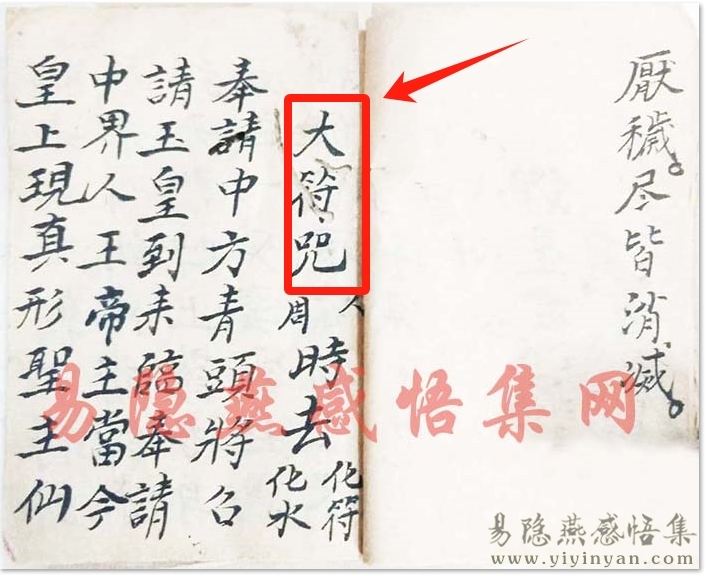 厭穢。尽皆消滅。
大符咒
周時去
化符
化水
奉請中方青頭將召
請玉皇到来臨奉請
中界人王帝主當今
皇上現真形聖主仙
易隐燕感悟集网
易隐燕感悟集
www.yiyinyan.com